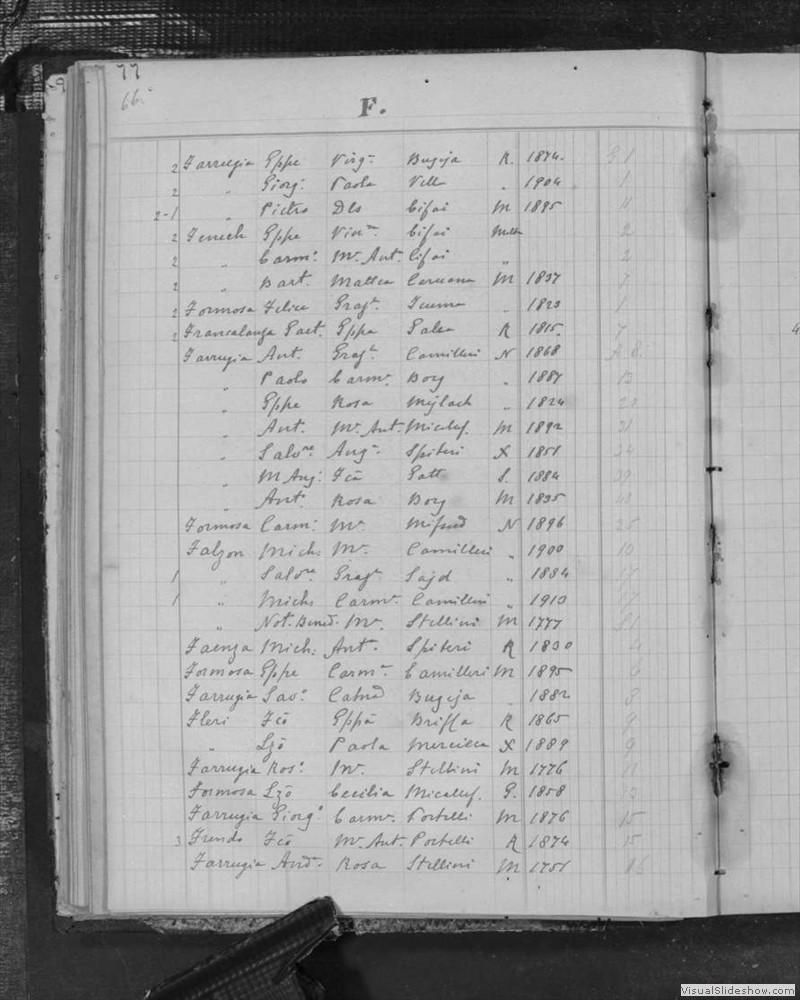 77
F.
2 Farrugia Gppe Virg.ª Bugeja R. 1874. G 1
2 " Giorg: Paola Vella . 1904 1
2-1 " Pietro Dls Cifai M 1895 11
2 Fenech Gppe Vin.ª Cifai 2
2 " Carm: M.ª Ant. Cifai " 2
2 " Bart. Mattea Caruana M 1837 7
2 Formosa Felice Graz.ª . 1823 1
2 Gppa Galea R 1815. 7
Farrugia Ant. Graz.ª Camilleri N 1868 A 8
" Paolo Carm.ª Borg . 1887 13
" Gppe Rosa Mejlach " 1824 20
" Ant. M.ª Ant. Micallef. M 1892 21
" Salv.re Ang.ª Spiteri X 1851 24
" M Ang: Fcã Gatt S. 1884 39
" Ant. Rosa Borg M 1835
Formosa Carm: M.ª Mifsud N 1896 25
Falzon Mich: M.ª Camilleri " 1900 10
1 " Salv.re Graz.ª Sajd " 1884 17
1 " Mich: Carm.ª Camilleri " 1913 17
" Not. Bened. M.ª Stellini M 1777 51
Faenza Mich: Ant.ª Spiteri R 1830 4
Formosa Gppe Carm.ª Camilleri M 1895 6
Farrugia Sav.º Catnã Bugeja . 1882 8
Fleri Fcõ Gppã Briffa R 1865 9
" Lzõ Paola Mercieca X 1889 9
Farrugia Ros.º M.ª Stellini M 1776 11
Formosa Lzõ Cecilia Micallef. G. 1858 12
Farrugia Giorg.º Carm.ª Portelli M 1876 15
3 Frendo Fcõ M.ª Ant. Portelli R 1874 15
Farrugia And.ª Rosa Stellini M 1751 16
4
VisualSlideshow.com